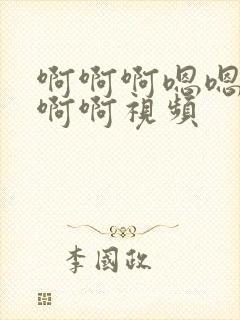 啊啊啊嗯嗯
啊啊視頻
李國政